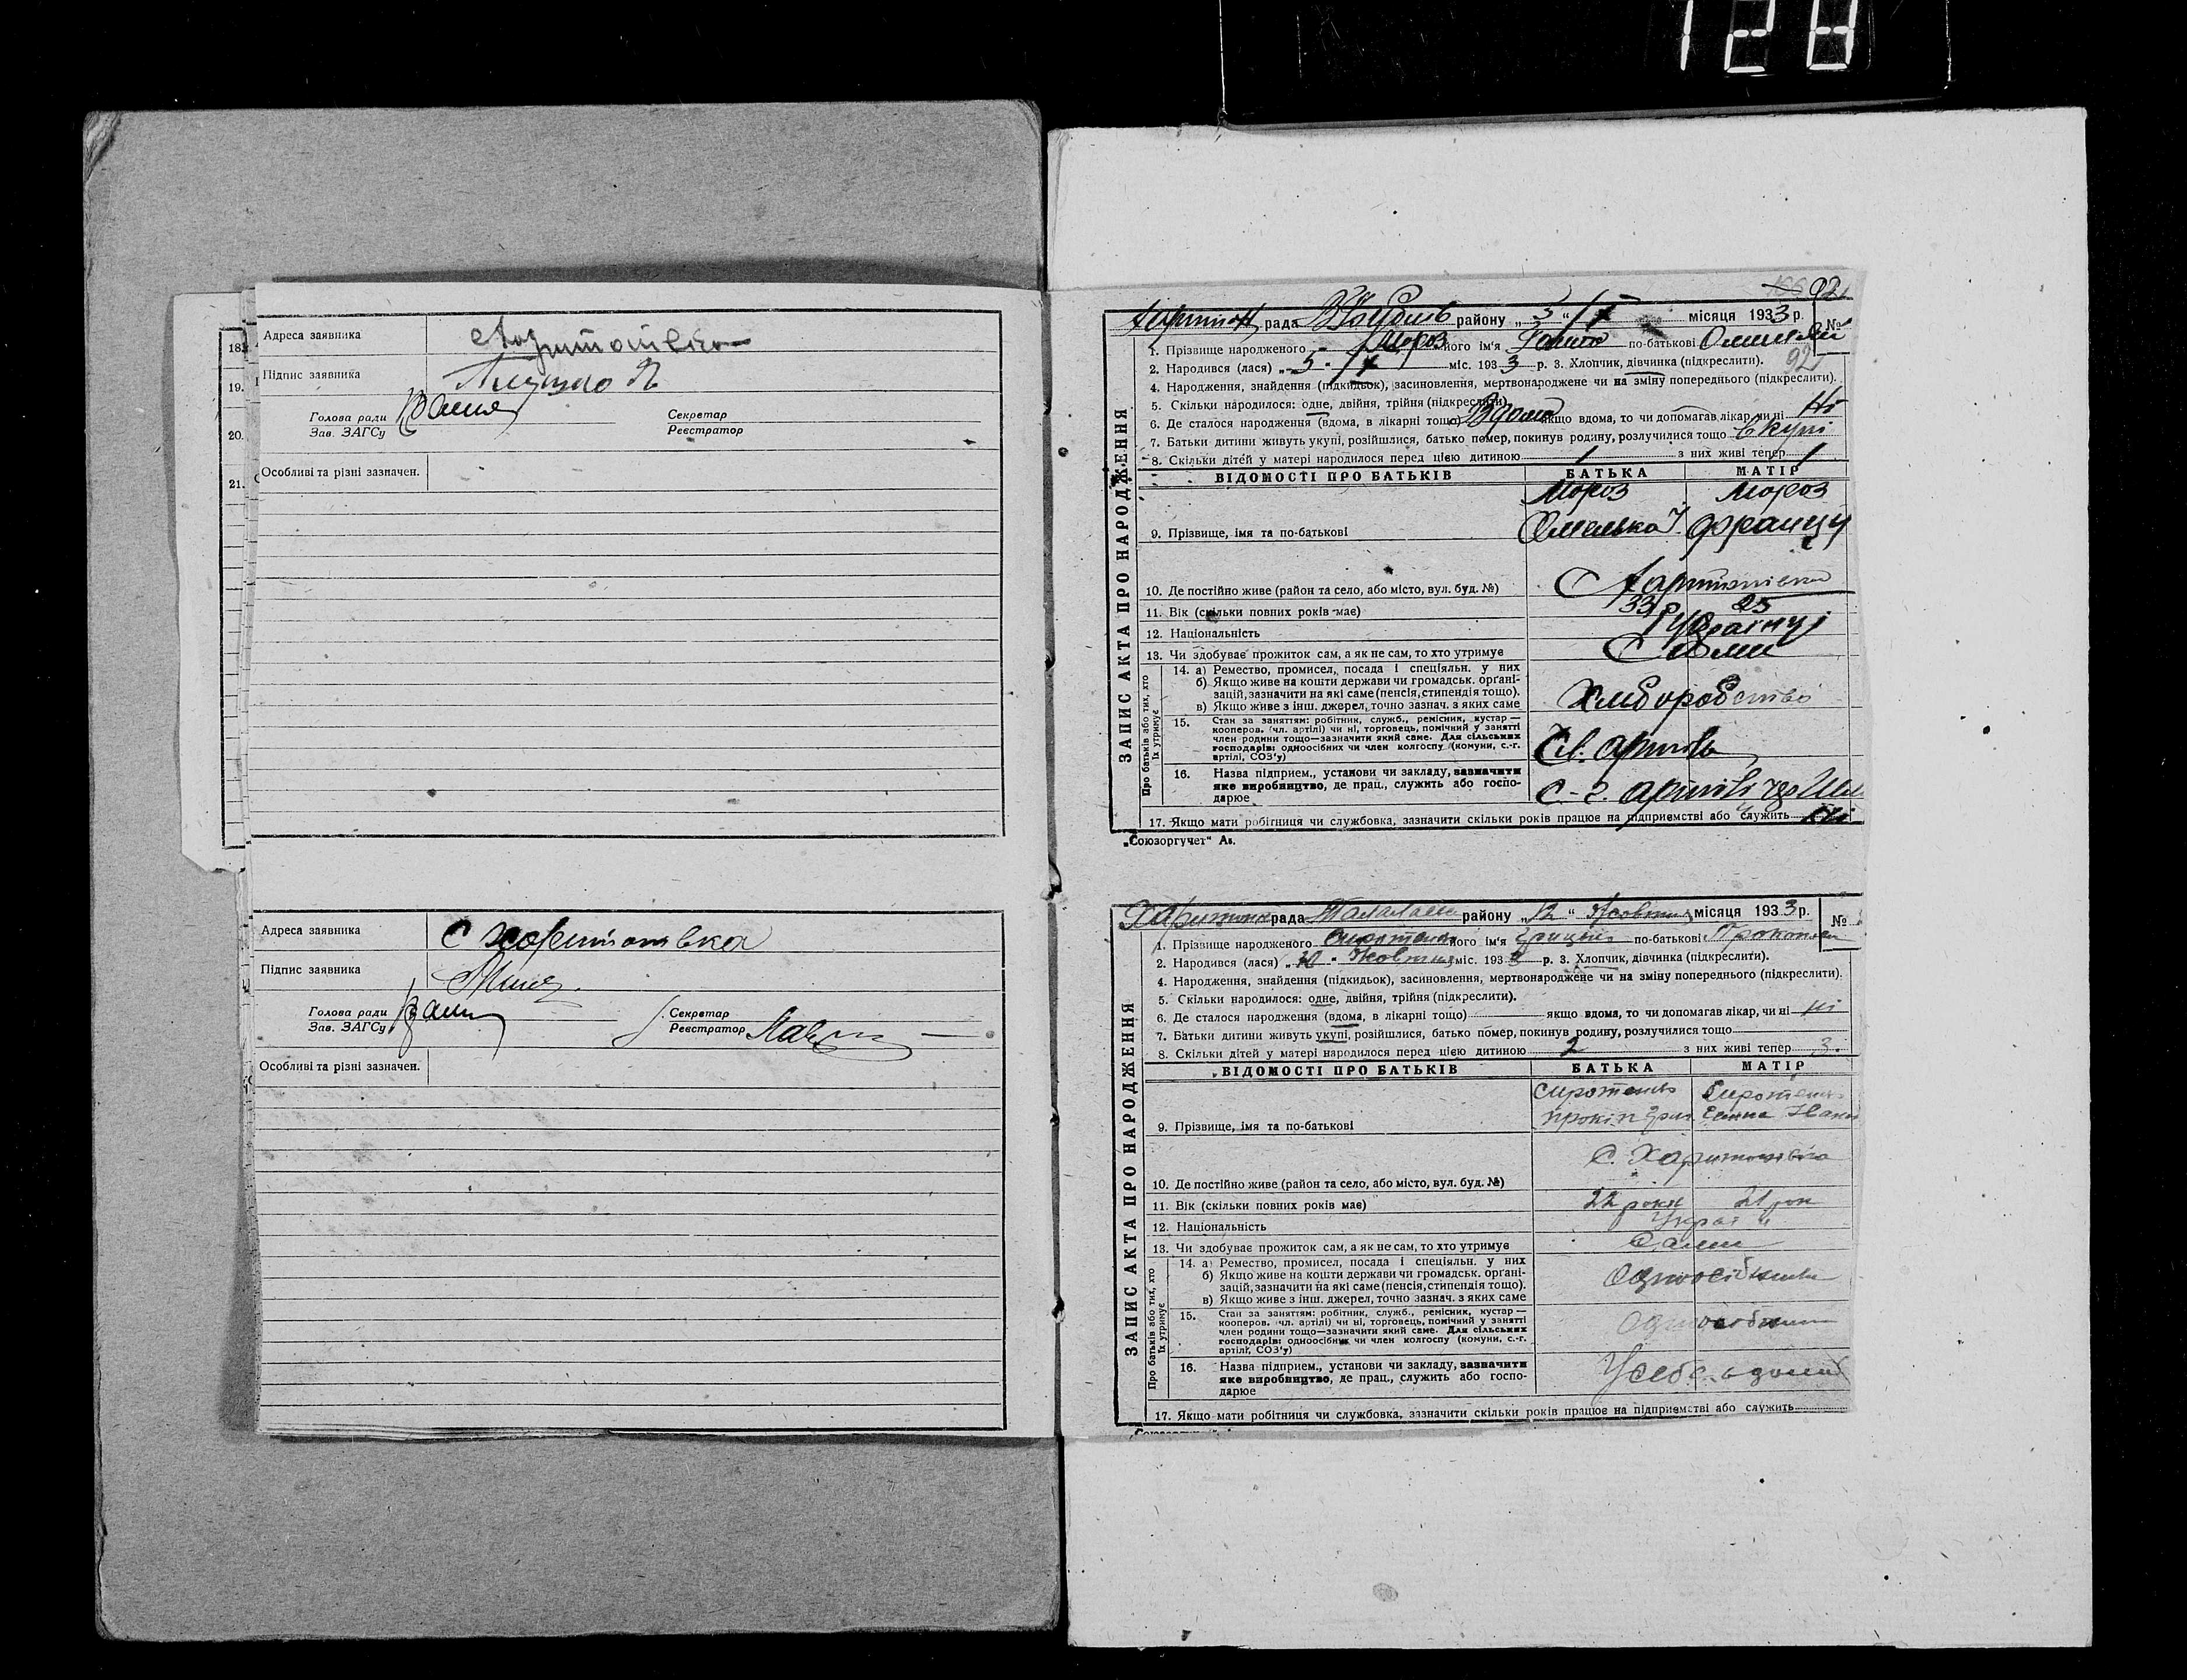 128
18.
19.
20.
21.
Адреса заявника
Підпис заявника
Голова ради
Зав. ЗАГСу
Секретар
Реєстратор
Особливі та різні зазначен.
Адреса заявника С Харитонівка
Підпис заявника
Голова ради
Зав. ЗАГСу
Секретар
Реєстратор
Особливі та різні зазначен.
92
ЗАПИС АКТА ПРО НАРОДЖЕННЯ
рада району „5“ місяця 1933 р. №
92
1. Прізвище народженого Мороз його ім'я по-батькові
2. Народився (лася) „5 міс. 1933 р. 3. Хлопчик, дівчинка (підкреслити).
4. Народження, знайдення (підкидьок), засиновлення, мертвонароджене чи на зміну попереднього (підкреслити).
5. Скільки народилося: одне, двійня, трійня (підкреслити).
6. Де сталося народження (вдома, в лікарні тощо) Вдома якщо вдома, то чи допомагав лікар, чи ні Ні
7. Батьки дитини живуть укупі, розійшлися, батько помер, покинув родину, розлучилися тощо вкупі
8. Скільки дітей у матері народилося перед цією дитиною 1 з них живі тепер 1
ВІДОМОСТІ ПРО БАТЬКІВ БАТЬКА МАТІР
Мороз Мороз
9. Прізвище, імя та по-батькові
10. Де постійно живе (район та село, або місто, вул. буд. №) С Харитонівка
11. Вік (скільки повних років має) 33 25
12. Національність Українці
13. Чи здобуває прожиток сам, а як не сам, то хто утримує Сами
Про батьків або тих, хто їх утримує
14. а) Ремество, промисел, посада і спеціяльн. у них
б) Якщо живе на кошти держави чи громадськ. орґані-
зацій, зазначити на які саме (пенсія, стипендія тощо).
в) Якщо живе з інш. джерел, точно зазнач. з яких саме Хліборобство
15. Стан за заняттям: робітник, служб., ремісник, кустар —
кооперов. (чл. артілі) чи ні, торговець, помічний у занятті
член родини тощо—зазначити який саме. Для сільських
господарів: одноосібних чи член колгоспу (комуни, с.-г.
артілі, СОЗ'у)
16. Назва підприєм., установи чи закладу, зазначити
яке виробництво, де прац., служить або госпо-
дарює С-г. артілі
17. Якщо мати робітниця чи службовка, зазначити скільки років працює на підприємстві або служить
„Союзоргучет“
ЗАПИС АКТА ПРО НАРОДЖЕННЯ
рада району „12“ Жовтня місяця 1933 р. №
1. Прізвище народженого його ім'я по-батькові
2. Народився (лася) „10“ Жовтня міс. 193 р. 3. Хлопчик, дівчинка (підкреслити).
4. Народження, знайдення (підкидьок), засиновлення, мертвонароджене чи на зміну попереднього (підкреслити).
5. Скільки народилося: одне, двійня, трійня (підкреслити).
6. Де сталося народження (вдома, в лікарні тощо) якщо вдома, то чи допомагав лікар, чи ні ні
7. Батьки дитини живуть укупі, розійшлися, батько помер, покинув родину, розлучилися тощо
8. Скільки дітей у матері народилося перед цією дитиною 2 з них живі тепер 3.
ВІДОМОСТІ ПРО БАТЬКІВ БАТЬКА МАТІР
9. Прізвище, імя та по-батькові
10. Де постійно живе (район та село, або місто, вул. буд. №) С. Харитонівка
11. Вік (скільки повних років має) 22 роки 21 рок
12. Національність
13. Чи здобуває прожиток сам, а як не сам, то хто утримує Сами
Про батьків або тих, хто їх утримує
14. а) Ремество, промисел, посада і спеціяльн. у них
б) Якщо живе на кошти держави чи громадськ. орґані-
зацій, зазначити на які саме (пенсія, стипендія тощо).
в) Якщо живе з інш. джерел, точно зазнач. з яких саме
15. Стан за заняттям: робітник, служб., ремісник, кустар —
кооперов. (чл. артілі) чи ні, торговець, помічний у занятті
член родини тощо—зазначити який саме. Для сільських
господарів: одноосібник чи член колгоспу (комуни, с.-г.
артілі, СОЗ'у)
16. Назва підприєм., установи чи закладу, зазначити
яке виробництво, де прац., служить або госпо-
дарює
17. Якщо мати робітниця чи службовка, зазначити скільки років працює на підприємстві або служить